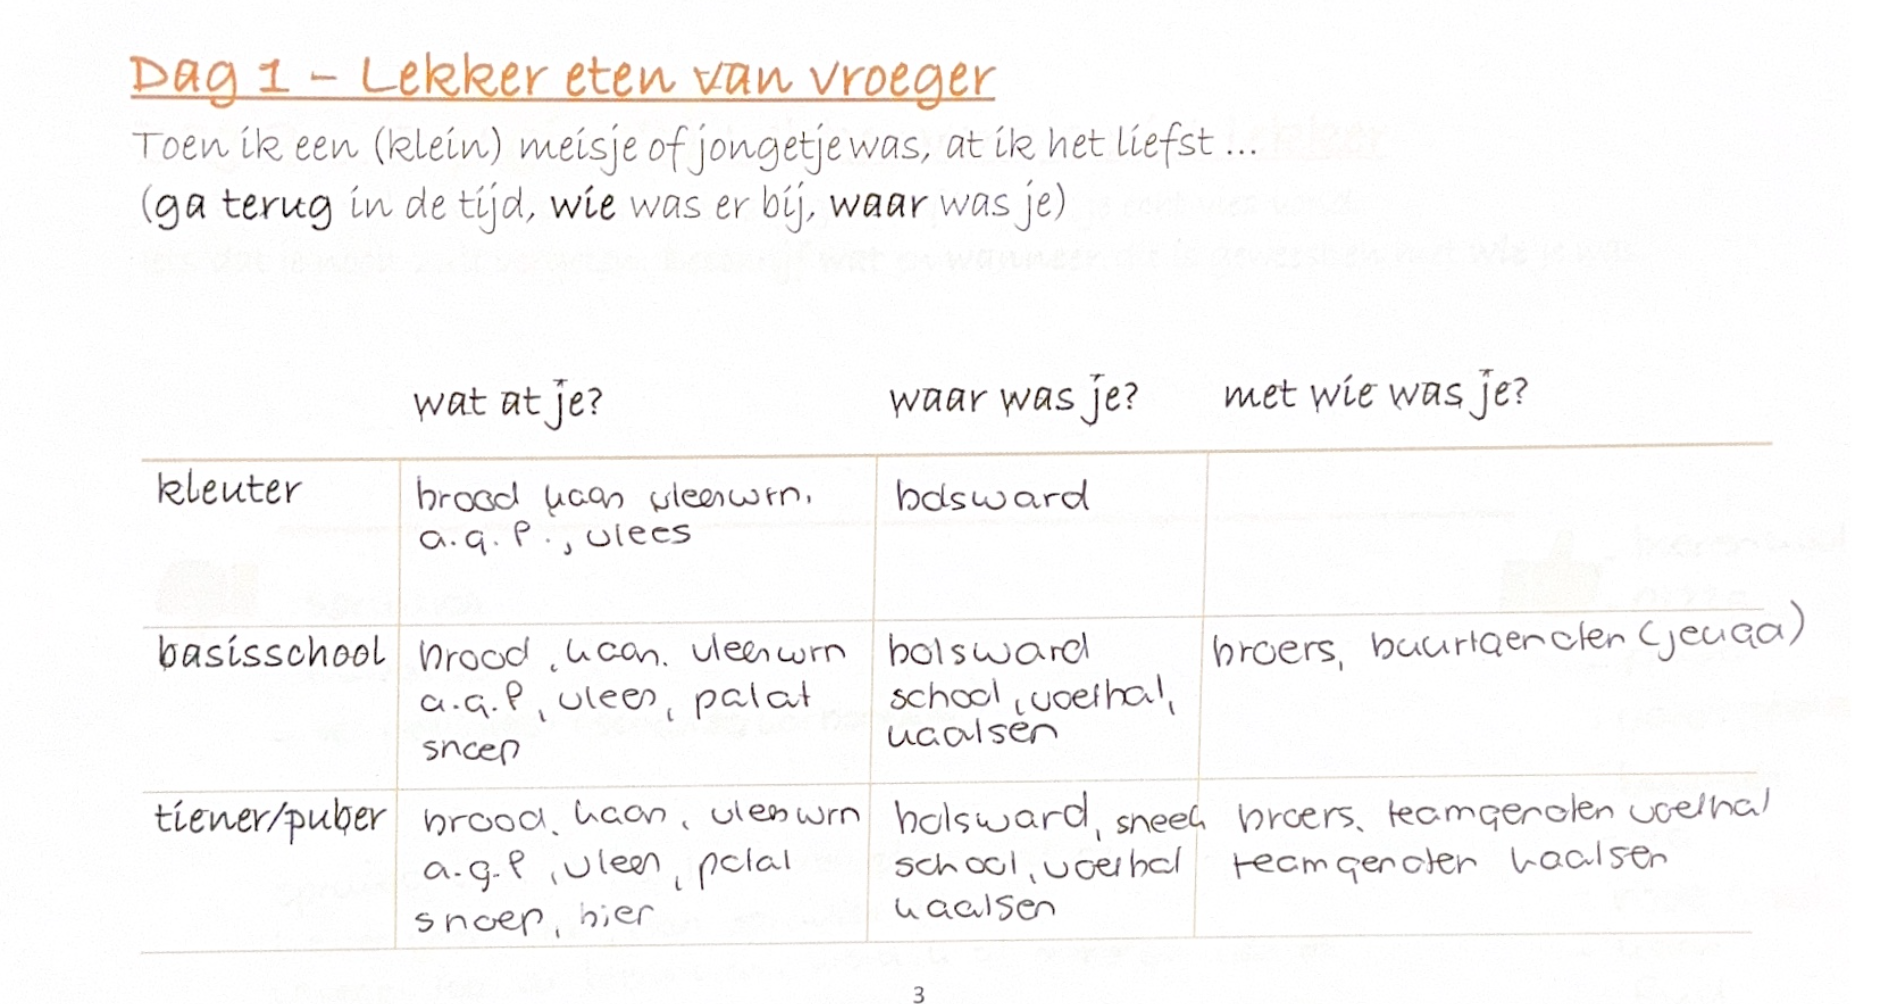 Dag 1 – Lekker eten van vroeger
Toen ik een (klein) meisje of jongetje was, at ik het liefst ...
(ga terug in de tijd, wie was er bij, waar was je)
wat at je? waar was je? met wie was je?
kleuter brood kaas vleeswrn. bolsward
a.g.P., vlees
basisschool brood, kaas. vleeswrn bolsward broers, buurtgenoten (jeugd)
a.g.P, vlees, patat school, voetbal,
snoep kaatsen
tiener/puber brood, kaas, vleeswrn bolsward, sneek broers, teamgenoten voetbal
a.g.P, vlees, patat school, voetbal teamgenoten kaatsen
snoep, bier kaatsen
3